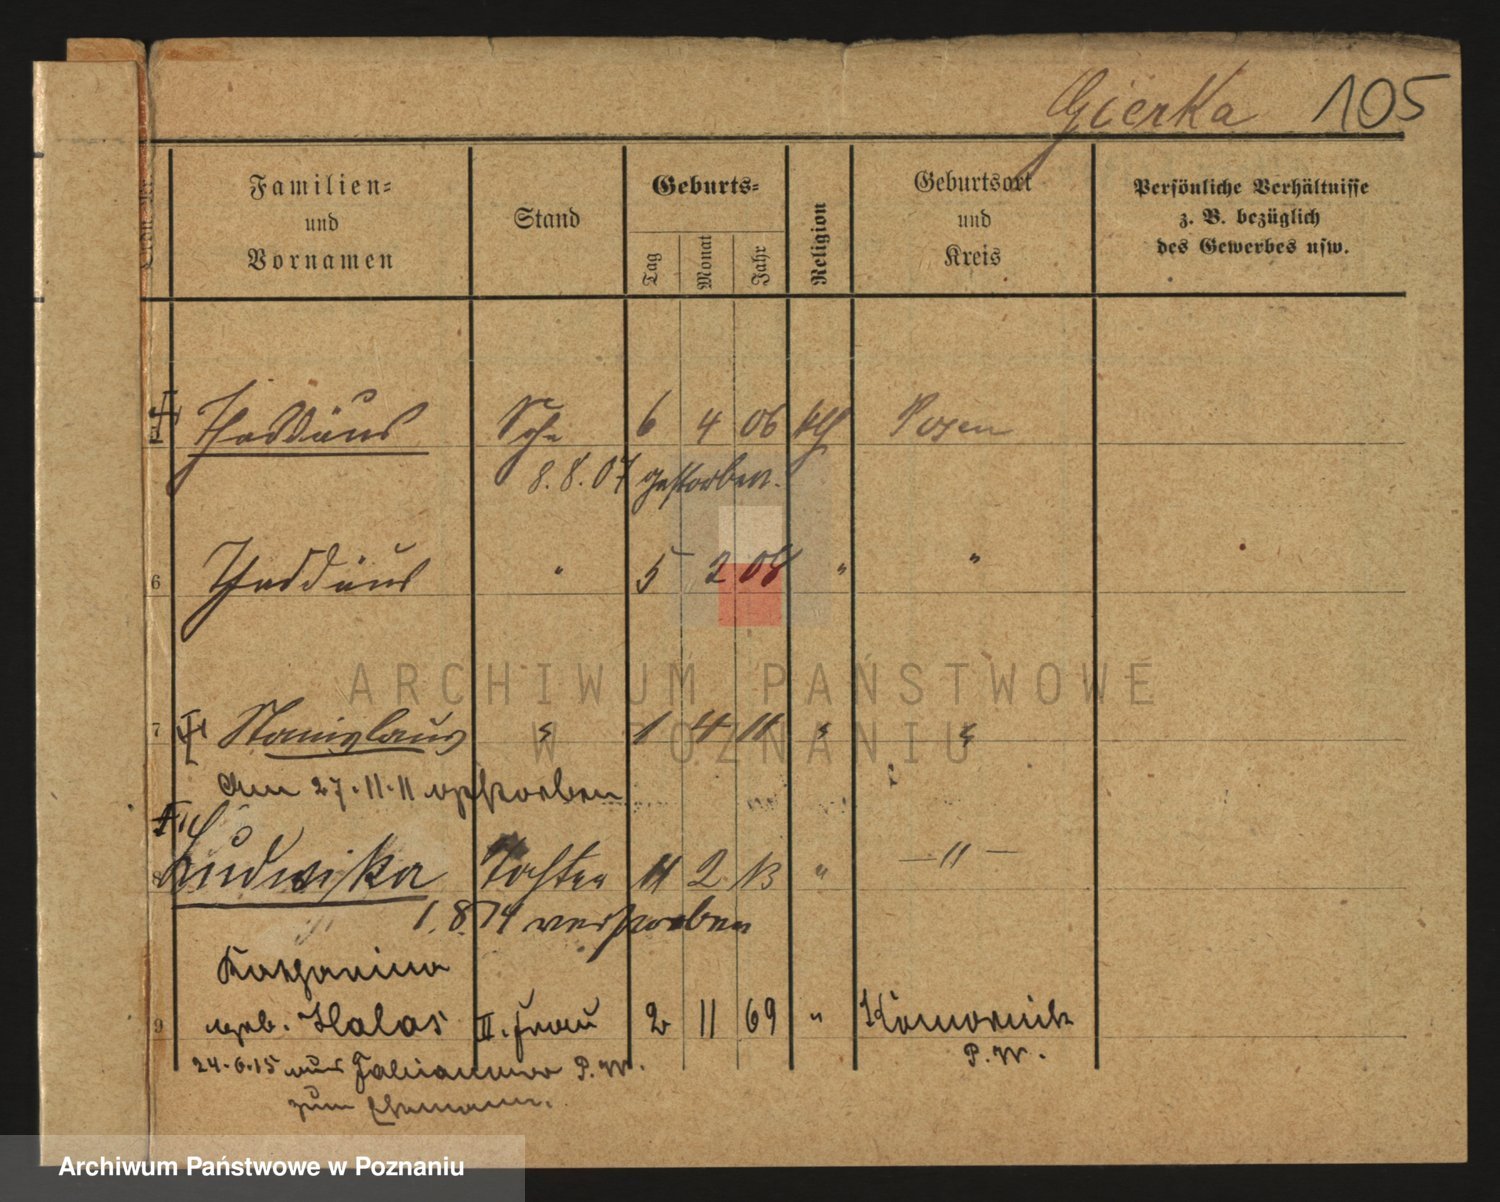 Gierka 105
Familien- und Vornamen
Stand
Geburts-
Tag Monat Jahr
Religion
Geburtsort und Kreis
Persönliche Verhältnisse z. B. bezüglich des Gewerbes usw.
Thaddäus 6 4 06 kth Posen
8.8.07 gestorben.
6 Thaddäus " 5 2 08 " "
7 Stanislaus " 1 4 11 " "
Am 27.11.11 gestorben
8 Ludwika Tochter 11 2 13 " — " —
1.8.14 verstorben
Katharina
9 geb. Halas II. Frau 2 11 69 " Komornik
24.6.15 aus Fabianowo P.W. P.W.
zum Ehemann.
ARCHIWUM PAŃSTWOWE
W POZNANIU
Archiwum Państwowe w Poznaniu